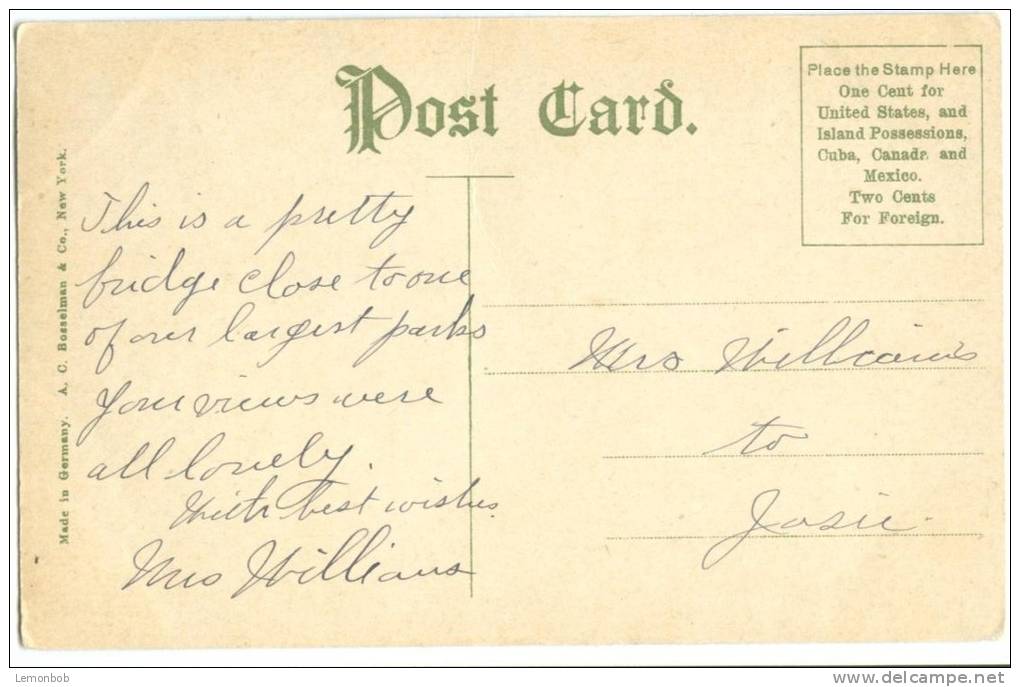 Post Card.
Place the Stamp Here
One Cent for
United States, and
Island Possessions,
Cuba, Canada and
Mexico.
Two Cents
For Foreign.
Made in Germany. A. C. Bosselman & Co., New York.
This is a pretty
bridge close to one
of our largest parks
Your views were
all lovely.
With best wishes.
Mrs Williams
Mrs Williams
to
Josie.
Lemonbob
www.delcampe.net